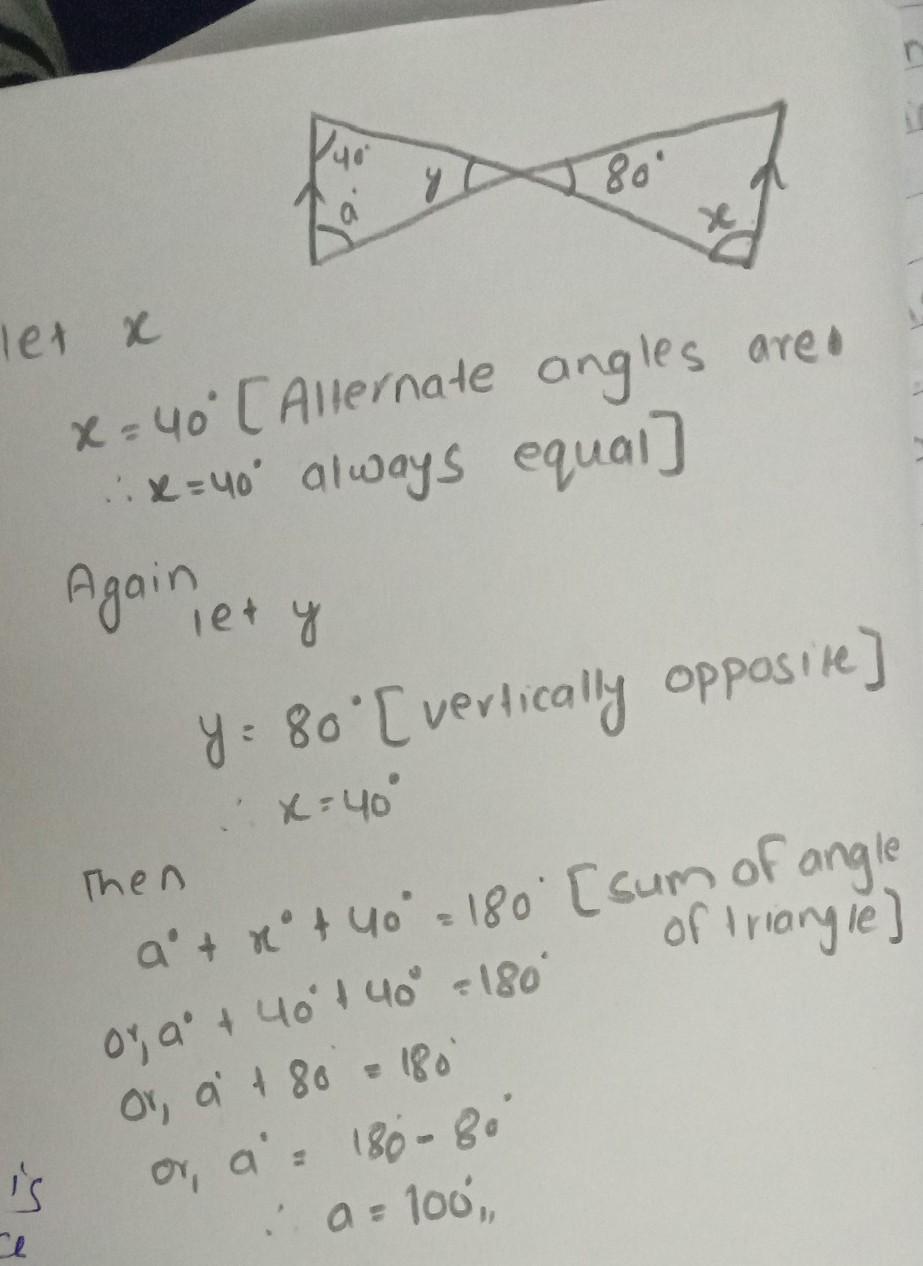 40°
y
80°
a°
x
let x
x = 40° [Alternate angles are
∴ x = 40° always equal]
Again
let y
y = 80° [vertically opposite]
∴ x = 40°
Then
a° + x° + 40° = 180° [sum of angle
of triangle]
or, a° + 40° + 40° = 180°
or, a° + 80° = 180°
or, a° = 180° - 80°
∴ a = 100°,,
is